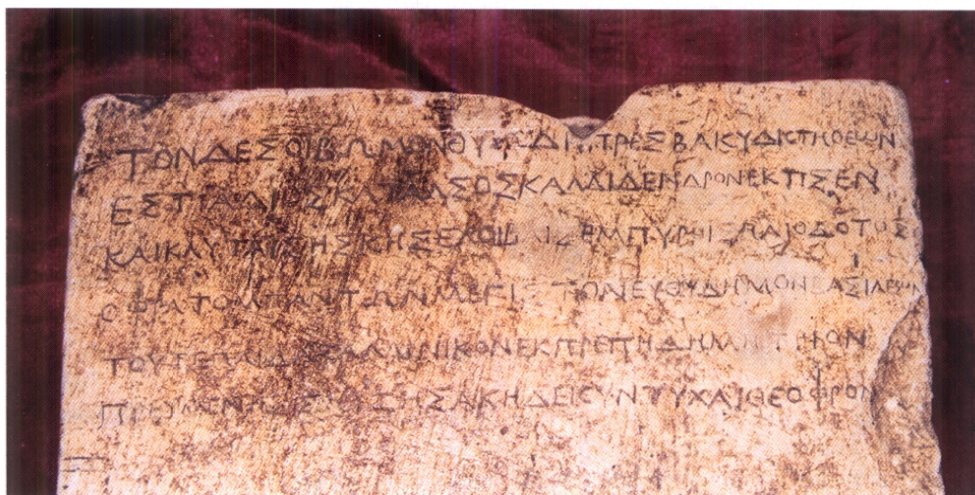 ΤΟΝΔΕΣΟΙΒΩΜΟΝΘΥΩΔΗΠΡΕΣΒΑΚΥΔΙΣΤΗΘΕΩΝ
ΕΣΤΙΑΔΙΟΣΚΑΤΑΛΣΟΣΚΑΛΛΙΔΕΝΔΡΟΝΕΚΤΙΣΕΝ
ΚΑΙΚΛΥΤΑΙΣΗΣΚΗΣΕΛΟΙΒΑΙΣΕΜΠΥΡΟΙΣΗΛΙΟΔΟΤΟΣ
ΟΦΡΑΤΟΜΠΑΝΤΩΝΜΕΓΙΣΤΟΝΕΥΘΥΔΗΜΟΝΒΑΣΙΛΕΩΝ
ΤΟΥΤΕΠΑΙΔΑΚΑΛΛΙΝΙΚΟΝΕΚΠΡΕΠΗΔΗΜΗΤΡΙΟΝ
ΠΡΕΥΜΕΝΗΣΣΩΙΖΗΣΑΚΗΔΕΙΣΥΝΤΥΧΑΙΘΕΟΦΡΟΝ